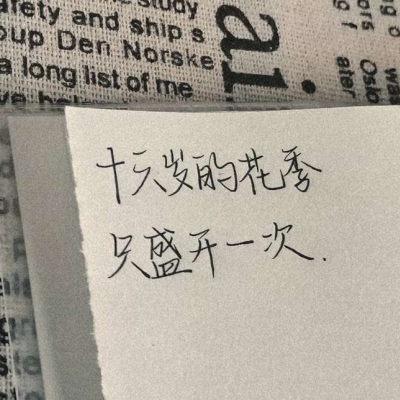 afety and ship s
oup Den Norske
a long list of me
al.
Oslo
ater
十六岁的花季
只盛开一次.